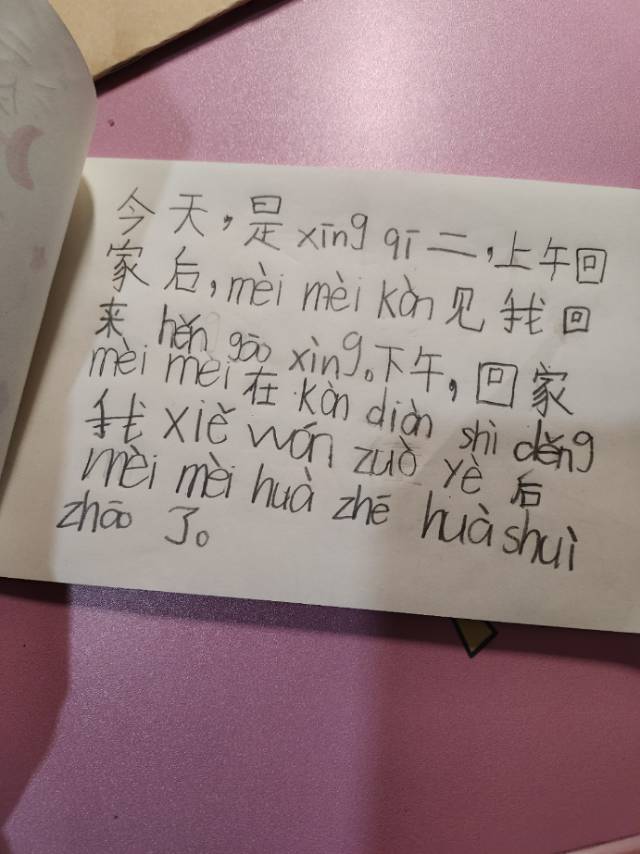 今天，是xīng qī二，上午回
家后，mèi mèi kàn见我回
来 hěn gāo xìng。下午，回家
mèi mei在kàn diàn shì děng
我xiě wán zuò yè后
mèi mèi huà zhē huà shuì
zhāo了。